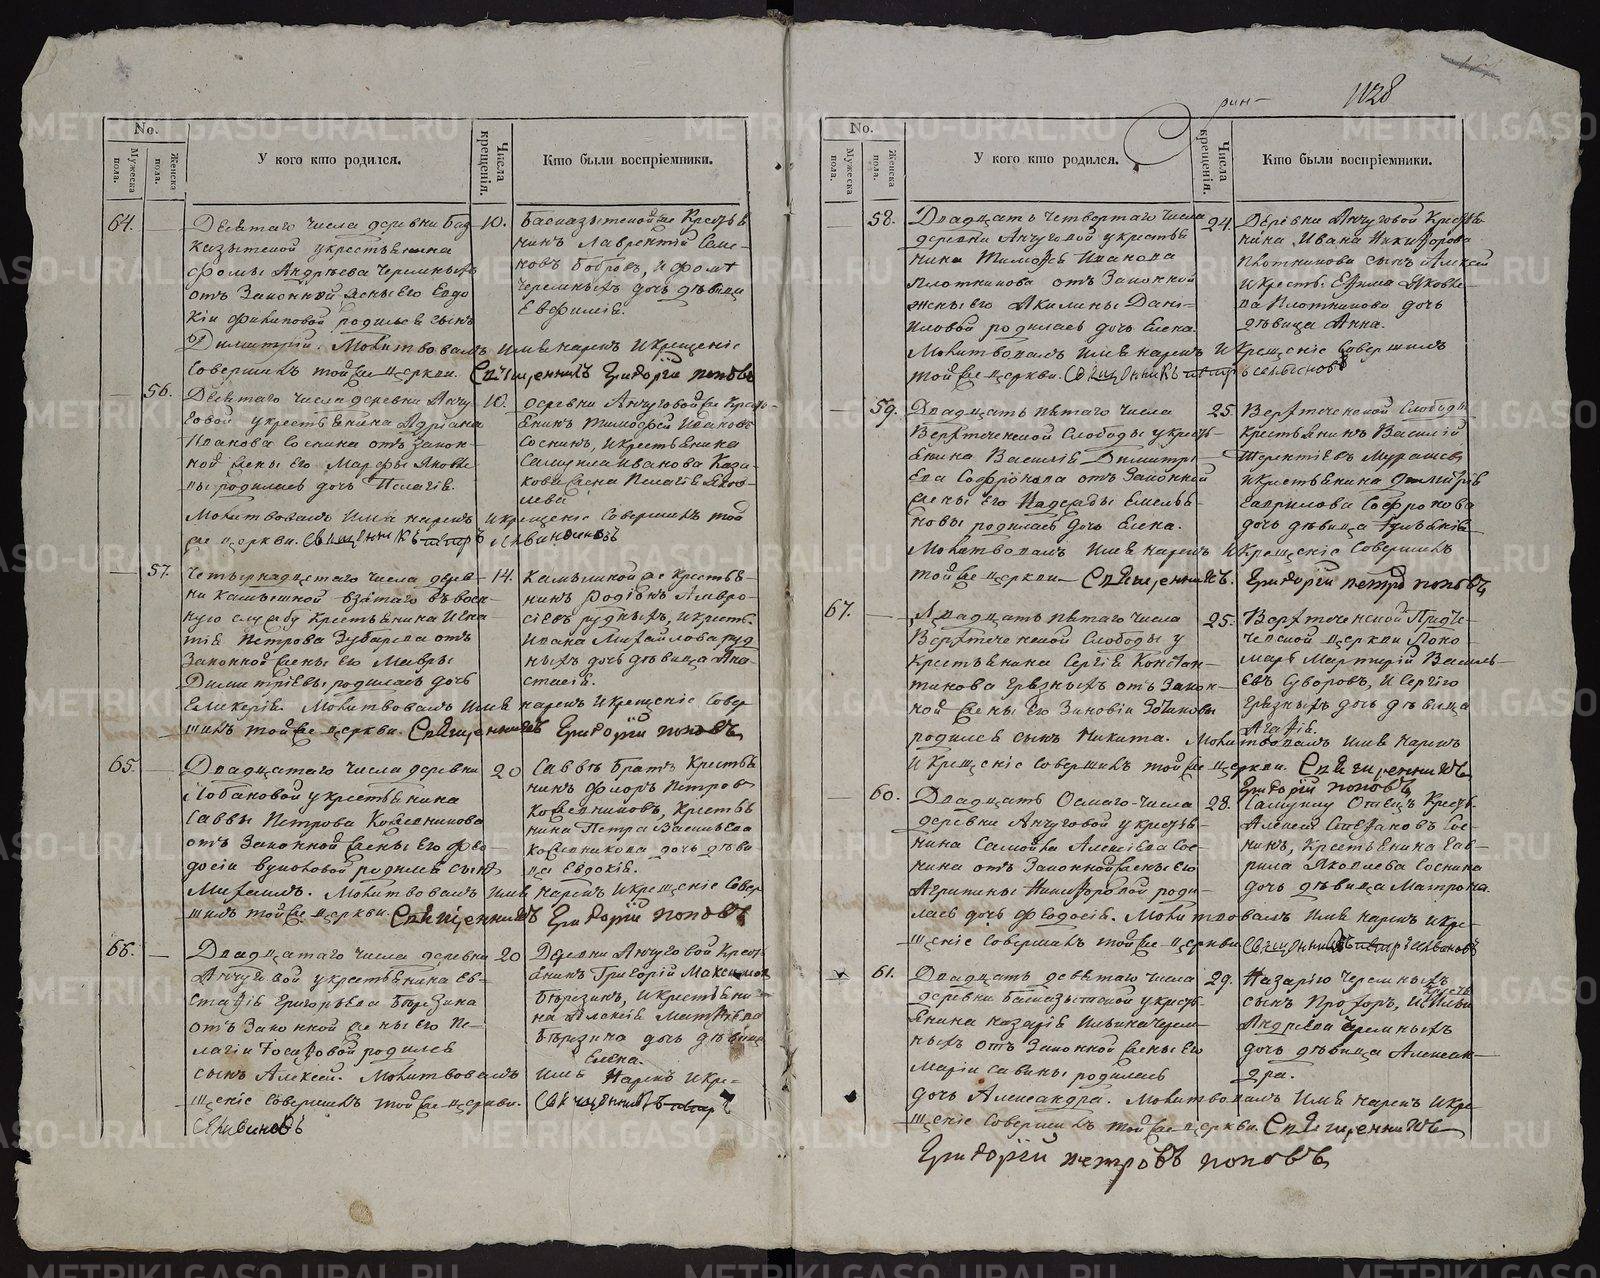 1128
рин-
No.
Мужеска пола.
Женска пола.
У кого кто родился.
Числа крещенія.
Кто были воспріемники.
64.
Девятаго числа деревни Бал
казытской у крестьянина
Фомы Андрѣева Черемныхъ
отъ Законной жены Его Евдо
кіи Филиповой родился сынъ
Димитрій. Молитвовалъ Имя нарекъ И крещеніе
Совершилъ той же церкви. Священникъ Григорій поповъ
10.
нинъ Лаврентій Семе-
новъ Бобровъ, И Фомы
Черемныхъ дочь дѣвица
Евфимія.
56.
Девятаго числа деревни Анчу
говой у крестьянина Адріана
Иванова Соснина отъ Закон-
ной жены Его Марфы Яковле
вы родилась дочь Пелагія.
Молитвовалъ Имя нарекъ И крещеніе Совершилъ той
же церкви. Священникъ
10.
деревни Анчуговой же Кресть-
янинъ Тимофей Ивановъ
Соснинъ, И крестьянина
Самуила Иванова Каза-
кова жена Пелагія Яков-
лева
57.
Четырнадцатаго числа дерев-
ни Камышной взятаго въ воен-
ную службу Крестьянина Игна-
тія Петрова Зубарева отъ
Законной жены Его Мавры
Димитріевы родилась дочь
Гликерія. Молитвовалъ Имя нарекъ И крещеніе Совер
шилъ той же церкви. Священникъ Григорій поповъ
14.
Камышной же Крестья-
нинъ Родіонъ Амвро-
сіевъ Рудныхъ, И крест.
Ивана Михайлова Руд
ныхъ дочь дѣвица Ана-
стасія.
65.
Двадцатаго числа деревни
Лобановой у крестьянина
Саввы Петрова Кожевникова
отъ Законной жены Его Ѳео-
досіи родился сынъ
Михаилъ. Молитвовалъ Имя нарекъ И крещеніе Совер
шилъ той же церкви. Священникъ Григорій поповъ
20
Саввѣ братъ Крестья
нинъ Флоръ Петровъ
Кожевниковъ, Крестья
нина Петра Васильева
Кожевникова дочь дѣви
ца Евдокія.
66.
Двадцатаго числа деревни
Анчуговой у крестьянина Ев-
стафія Григорьева Березина
отъ Законной жены Его Пе-
лагіи Іосифовой родился
сынъ Алексей. Молитвовалъ
щеніе Совершилъ той же церкви.
20
Деревни Анчуговой Кресть
янинъ Григорій Максимов
Березинъ, И крестьяни-
на Алексія Матвѣева
Березина дочь дѣвица
Елена.
Имя Нарекъ И кре-
Священникъ
No.
Мужеска пола.
Женска пола.
У кого кто родился.
Числа крещенія.
Кто были воспріемники.
58.
Двадцать четвертаго числа
деревни Анчуговой у крестья
нина Тимофея Иванова
Плотникова отъ Законной
жены его Акилины Дани-
иловой родилась дочь Елена.
Молитвовалъ Имя нарекъ И Крещеніе Совершилъ
той же церкви. Священникъ
24.
Деревни Анчуговой Крестья-
нина Ивана Никифорова
Плотникова сынъ Алексей
И крестья: Ефима Яковле-
ва Плотникова дочь
дѣвица Анна.
59.
Двадцать пятаго числа
Верхтеченской Слободы у кресть-
янина Василія Димитрі-
ева Софронова отъ Законной
жены Его Надежды Емелья-
новы родилась дочь Елена.
Молитвовалъ Имя нарекъ И Крещеніе Совершилъ
той же церкви Священникъ. Григорій петровъ поповъ
25
Верхтеченской Слободы
Крестьянинъ Василій
Терентіевъ Мурашев
И крестьянина Димитрія
Гаврилова Софронова
дочь дѣвица
67.
Двадцать пятаго числа
Верхтеченской Слободы у
Крестьянина Сергія Констан-
тинова Грязныхъ отъ Закон-
ной жены Его Зиновіи
родился сынъ Никита. Молитвовалъ Имя Нарекъ
И Крещеніе Совершилъ той же церкви. Священникъ
Григорій поповъ
25.
Верхтеченской Предте-
ченской церкви Поно
марь Мартирій Василь-
евъ Суворовъ, И Сергіго
Грязныхъ дочь дѣвица
Агафія.
60.
Двадцать Осмаго числа
деревни Анчуговой у кресть-
нина Самойла Алексіева Сос-
нина отъ Законной жены его
Агрипины Никифоровой роди-
лась дочь Ѳеодосія. Молитвовалъ Имя нарекъ И кре-
щеніе Совершилъ той же церкви Священникъ
28.
Самуилу Отецъ Кресть.
Алексей Стефановъ Сос-
нинъ, Крестьянина Гав-
рила Яковлева Соснина
дочь дѣвица Матрона.
61.
Двадцать девятаго числа
деревни у кресть-
янина Назарія Ильина Черем-
ныхъ отъ Законной жены Его
Маріи Савины родилась
дочь Александра. Молитвовалъ Имя нарекъ И кре-
щеніе Совершилъ той же церкви. Священникъ
Григорій петровъ поповъ
29.
Назарію Черемныхъ
сынъ Прохоръ, И кресть Ильи
Андреева Черемныхъ
дочь дѣвица Алексан-
дра.
METRIKI.GASO-URAL.RU